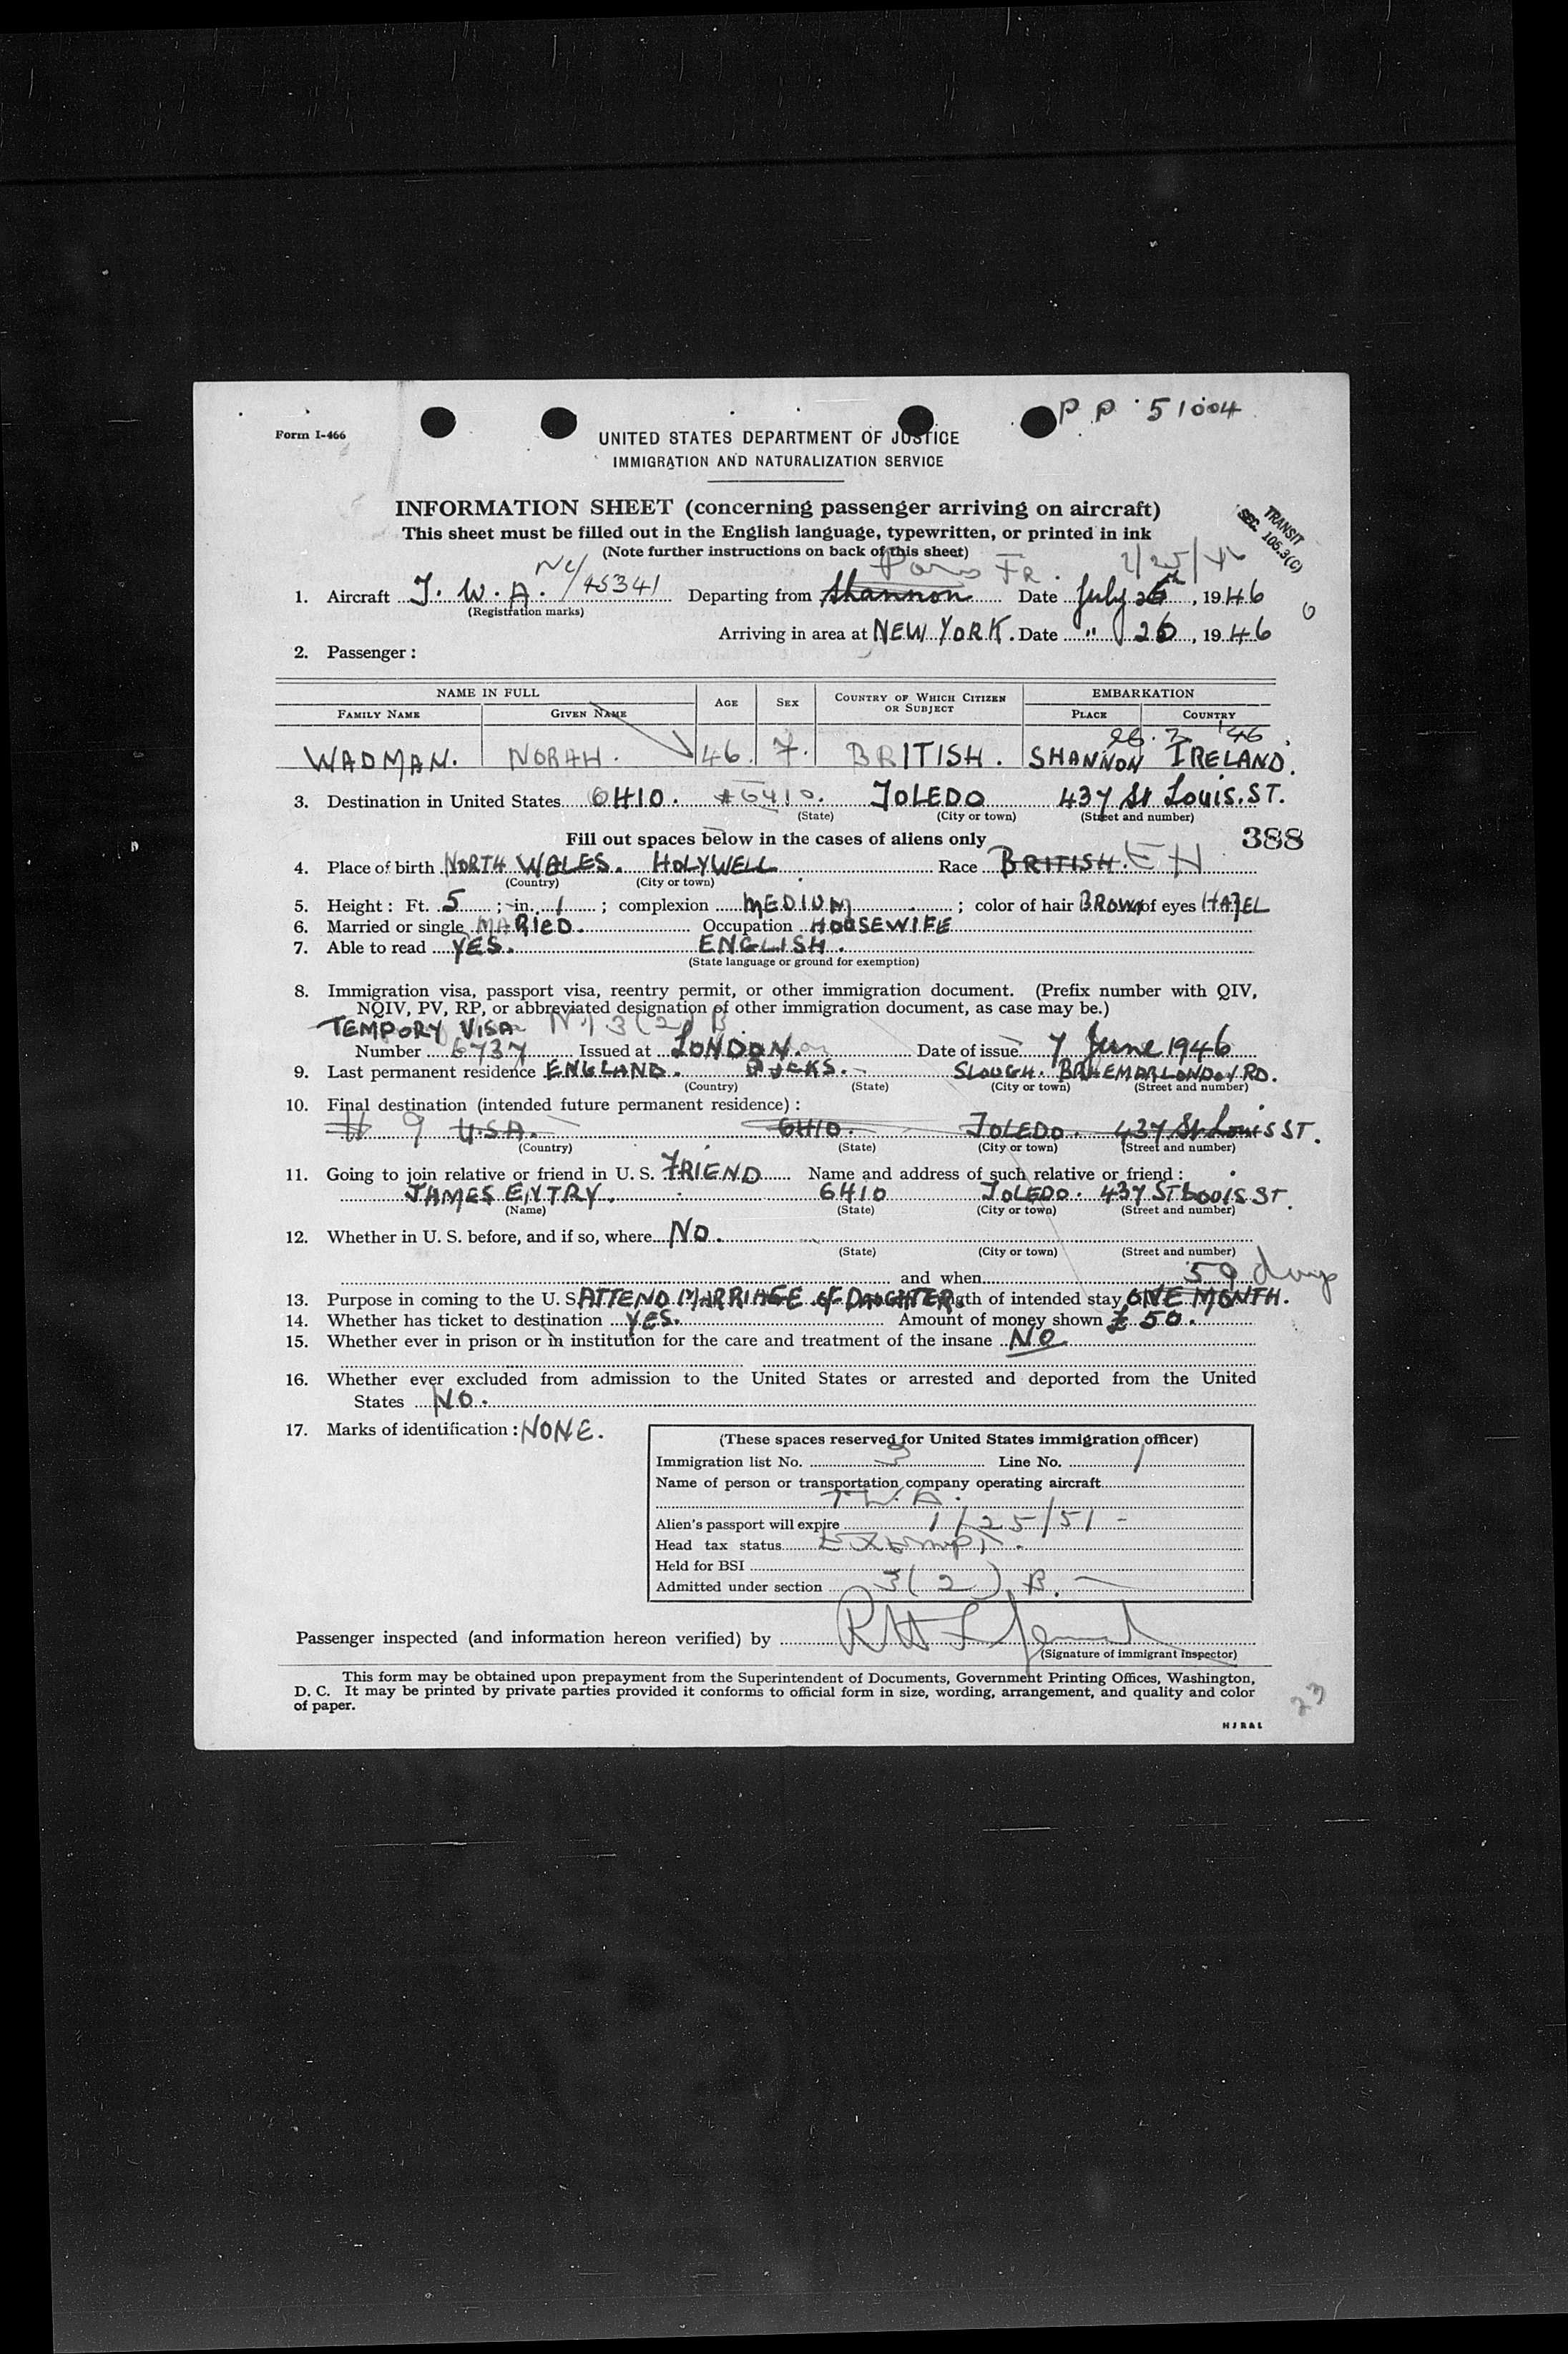 P P 51004
Form I-466
UNITED STATES DEPARTMENT OF JUSTICE
IMMIGRATION AND NATURALIZATION SERVICE
INFORMATION SHEET (concerning passenger arriving on aircraft)
This sheet must be filled out in the English language, typewritten, or printed in ink
(Note further instructions on back of this sheet)
TRANSIT
SEC. 106.3(C)
Paris FR.
1. Aircraft T. W. A. NC/45341 Departing from Shannon Date July 26, 1946
(Registration marks)
Arriving in area at NEW YORK. Date " 26, 1946
2. Passenger :
NAME IN FULL AGE SEX COUNTRY OF WHICH CITIZEN OR SUBJECT EMBARKATION
FAMILY NAME GIVEN NAME PLACE COUNTRY
26. 7 '46
WADMAN. NORAH. 46. F. BRITISH. SHANNON IRELAND.
3. Destination in United States OHIO. TOLEDO 437 St Louis. ST.
(State) (City or town) (Street and number)
Fill out spaces below in the cases of aliens only 388
4. Place of birth NORTH WALES. HOLYWELL Race BRITISH.
(Country) (City or town)
5. Height : Ft. 5 ; in. 1 ; complexion MEDIUM ; color of hair BROWN of eyes HAZEL
6. Married or single MARIED. Occupation HOUSEWIFE
7. Able to read YES. ENGLISH.
(State language or ground for exemption)
8. Immigration visa, passport visa, reentry permit, or other immigration document. (Prefix number with QIV,
NQIV, PV, RP, or abbreviated designation of other immigration document, as case may be.)
TEMPORY VISA 3(2) B
Number 6737 Issued at LONDON. Date of issue 7 June 1946
9. Last permanent residence ENGLAND. BUCKS. SLOUGH. BRAEMAR LONDON RD.
(Country) (State) (City or town) (Street and number)
10. Final destination (intended future permanent residence) :
# 9 U.S.A. OHIO. TOLEDO. 437 St Louis ST.
(Country) (State) (City or town) (Street and number)
11. Going to join relative or friend in U. S. FRIEND Name and address of such relative or friend :
JAMES ENTRY. OHIO TOLEDO. 437 ST LOUIS ST.
(Name) (State) (City or town) (Street and number)
12. Whether in U. S. before, and if so, where NO.
(State) (City or town) (Street and number)
and when 59 days
13. Purpose in coming to the U. S. ATTEND MARRIAGE OF DAUGHTER length of intended stay ONE MONTH.
14. Whether has ticket to destination YES. Amount of money shown £ 50.
15. Whether ever in prison or in institution for the care and treatment of the insane NO
16. Whether ever excluded from admission to the United States or arrested and deported from the United
States NO.
17. Marks of identification : NONE.
(These spaces reserved for United States immigration officer)
Immigration list No. 3 Line No. 1
Name of person or transportation company operating aircraft
T.W.A.
Alien's passport will expire 1/25/51 -
Head tax status Exempt.
Held for BSI
Admitted under section 3(2) B.
Passenger inspected (and information hereon verified) by
(Signature of immigrant inspector)
This form may be obtained upon prepayment from the Superintendent of Documents, Government Printing Offices, Washington,
D. C. It may be printed by private parties provided it conforms to official form in size, wording, arrangement, and quality and color
of paper.
23
HJR&L